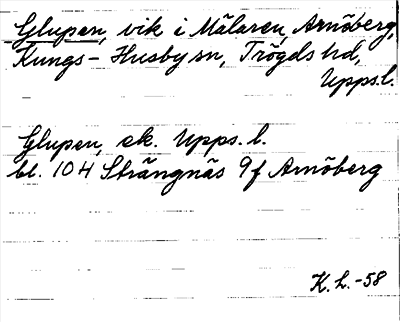 Glupen, vik i Mälaren, Arnöberg,
Kungs-Husby sn, Trögds hd,
Upps.l.
Glupen, ek. Upps. l.
bl. 104 Strängnäs 9f Arnöberg
K.L.-58